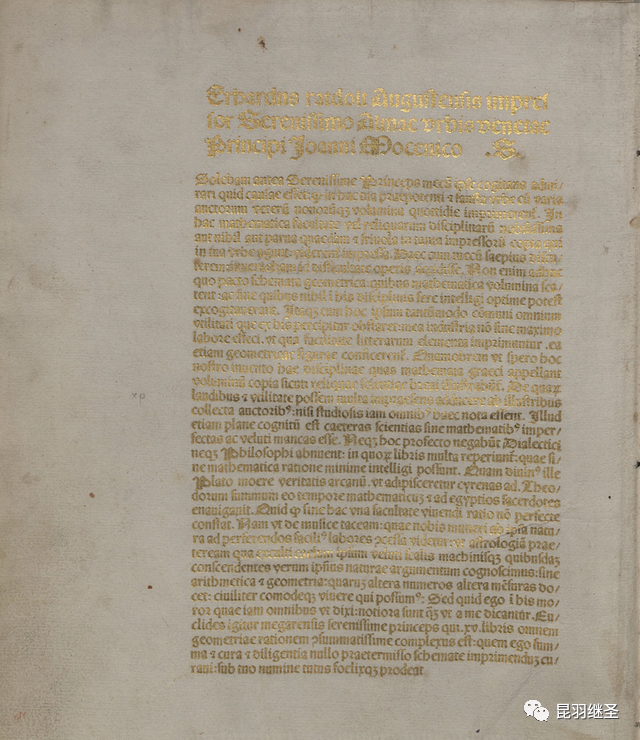 Erhardus ratdolt Augustensis impres
sor Serenissimo Almae vrbis venetae
Principi Joanni Mocenico .S.
Solebam antea Serenissime Princeps mecū ipse cogitans admi/
rari quid causae esset: in hac tua praepotenti & fausta vrbe cū varia
auctorum veterū nouorūqȝ volumina quottidie imprimerent. In
hac mathematica facultate vel reliquarum disciplinarū nobilissima
aut nihil aut parua quaedam & friuola in tanta impressorū copia qui
in tua vrbe agunt: viderent impressa. Haec cum mecū saepius discu/
terem: inueniebam: difficultate operis accidisse. Non enim adhuc
quo pacto schemata geometrica: quibus mathematica volumina sca/
tent: ac sine quibus nihil ī his disciplinis fere intelligi optime potest
excogitauerant. Itaqȝ cum hoc ipsum tantūmodo cōmuni omnium
vtilitati que ex his percipitur obstaret: mea industria nō sine maximo
labore effeci. vt qua facilitate litterarum elementa imprimuntur .ea
etiam geometrice figurae conficerent. Quamobrem vt spero hoc
nostro inuento hae disciplinae quas mathemata graeci appellant
voluminū copia sicuti reliquae scientiae breui illustrabūt. De quarꝫ
laudibus & vtilitate possem multa impresens adducere ab illustribus
collecta auctoribꝰ: nisi studiosis iam omnibꝰ haec nota essent. Illud
etiam plane cognitū est caeteras scientias sine mathematibꝰ imper/
fectas ac veluti mancas esse. Neqȝ hoc profecto negabūt Dialectici
neqȝ Philosophi abnuent: in quorꝫ libris multa reperiunt: quae si/
ne mathematica ratione minime intelligi possunt. Quam diuinꝰ ille
Plato mere veritatis arcanū. vt adipisceretur cyrenas ad. Theo/
dorum summum eo tempore mathematicuȝ & ad egyptios sacerdotes
enauigauit. Quid qꝫ sine hac vna facultate viuendi ratio nō perfecte
constat. Nam vt de musice taceam: quae nobis muneri ab ipsa natu
ra ad perferendos faciliꝰ labores ɔcessa videtur: vt astrologiā prae/
teream qua exculti caelum ipsum veluti scalis machinisqȝ quibusdaȝ
conscendentes verum ipsius naturae argumentum cognoscimus: sine
arithmetica & geometria: quaruȝ altera numeros altera mēsuras do/
cet: ciuiliter comodeqȝ viuere qui possumꝰ: Sed quid ego ī his mo/
ror quae iam omnibus vt dixi: notiora sunt qȝ vt a me dicantur. Eu/
clides igitur megarensis serenissime princeps qui .xv. libris omnem
geometriae rationem ɔsummatissime complexus est: quem ego sum/
ma & cura & diligentia nullo praetermisso schemate imprimenduȝ cu/
raui: sub tuo numine tutus foelixqȝ prodeat.
昆羽继圣